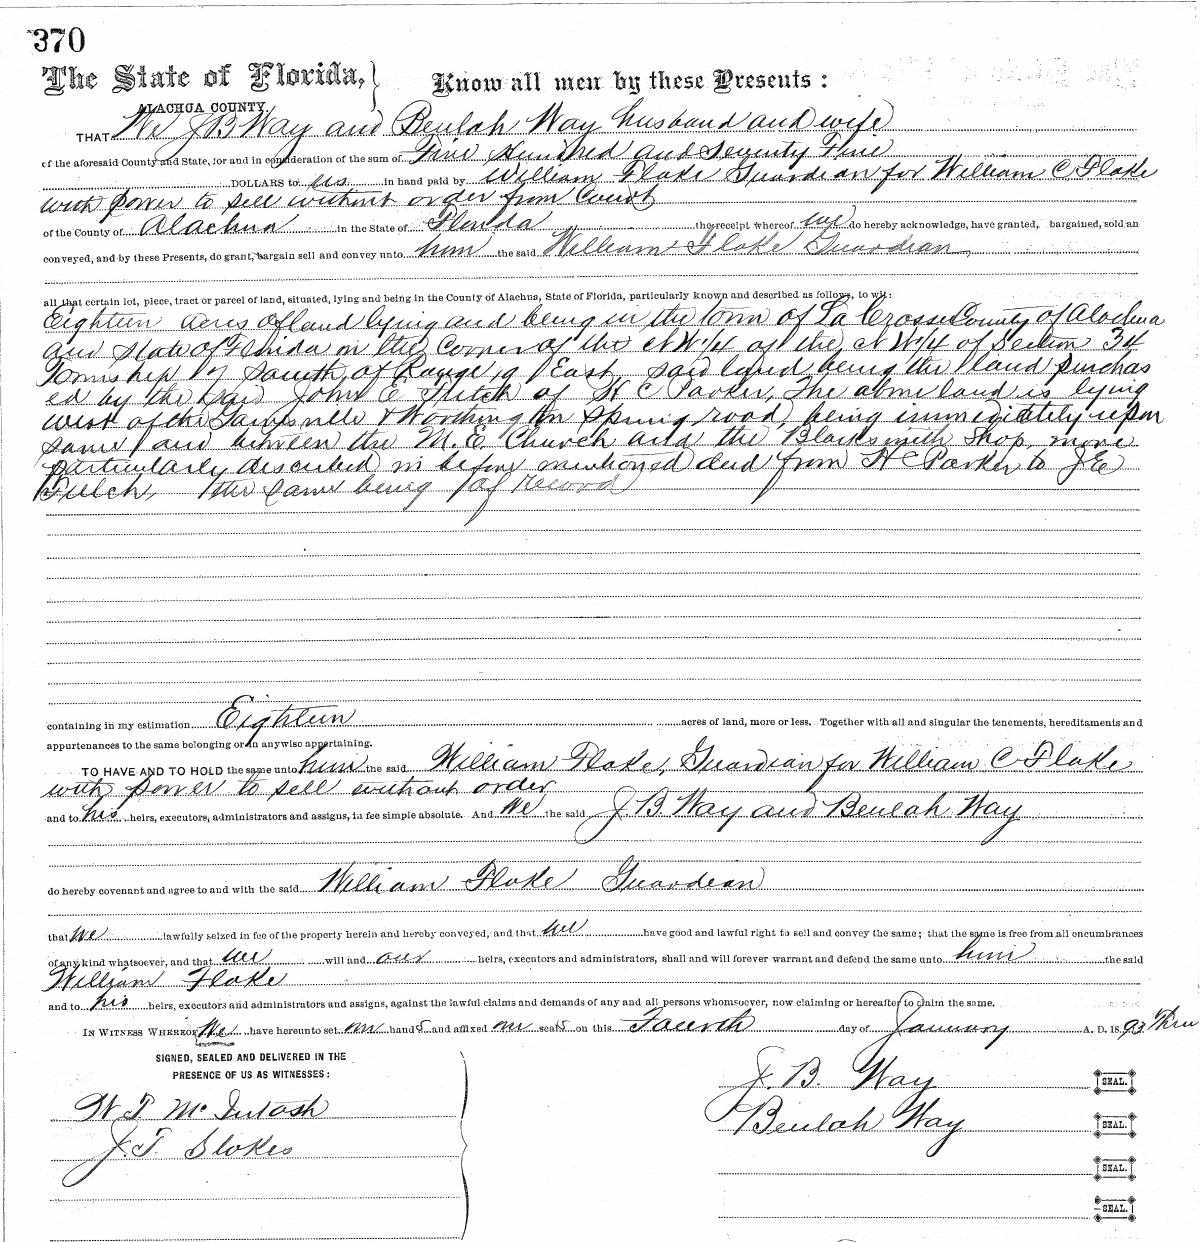 370
The State of Florida, } Know all men by these Presents :
ALACHUA COUNTY.
THAT We J B Way and Beulah Way husband and wife
of the aforesaid County and State, for and in consideration of the sum of Five Hundred and Seventy Five
DOLLARS to us in hand paid by William Flake Guardian for William C Flake
with power to sell without order from Court
of the County of Alachua in the State of Florida the receipt whereof we do hereby acknowledge, have granted, bargained, sold an
conveyed, and by these Presents, do grant, bargain sell and convey unto him the said William Flake Guardian,
all that certain lot, piece, tract or parcel of land, situated, lying and being in the County of Alachua, State of Florida, particularly known and described as follows, to wit:
Eighteen acres of land lying and being in the town of La Crosse County of Alachua
and State of Florida on the Corner of the NW 1/4 of the NW 1/4 of Section 34
Township 7 South, of Range 19 East, said land being the land purchas
ed by the said John E Futch of H C Parker, The above land is lying
west of the Gainesville & Worthington Spring road, being immediately upon
same and between the M.E. Church and the Blacksmith Shop, more
particularly discribed in before mentioned deed from H C Parker to J E
Futch, the same being of record
containing in my estimation Eighteen acres of land, more or less. Together with all and singular the tenements, hereditaments and
appurtenances to the same belonging or in anywise appertaining.
TO HAVE AND TO HOLD the same unto him the said William Flake, Guardian for William C Flake
with power to sell without order
and to his heirs, executors, administrators and assigns, in fee simple absolute. And We the said J. B. Way and Beulah Way
do hereby covenant and agree to and with the said William Flake Guardian
that we lawfully seized in fee of the property herein and hereby conveyed, and that we have good and lawful right to sell and convey the same; that the same is free from all encumbrances
of any kind whatsoever, and that we will and our heirs, executors and administrators, shall and will forever warrant and defend the same unto him the said
William Flake
and to his heirs, executors and administrators and assigns, against the lawful claims and demands of any and all persons whomsoever, now claiming or hereafter to claim the same.
IN WITNESS WHEREOF We have hereunto set our hands and affixed our seals on this Fourth day of January A. D. 1893 Three
SIGNED, SEALED AND DELIVERED IN THE
PRESENCE OF US AS WITNESSES :
J. B. Way SEAL.
W T McIntosh
Beulah Way SEAL.
J. T. Stokes
SEAL.
SEAL.